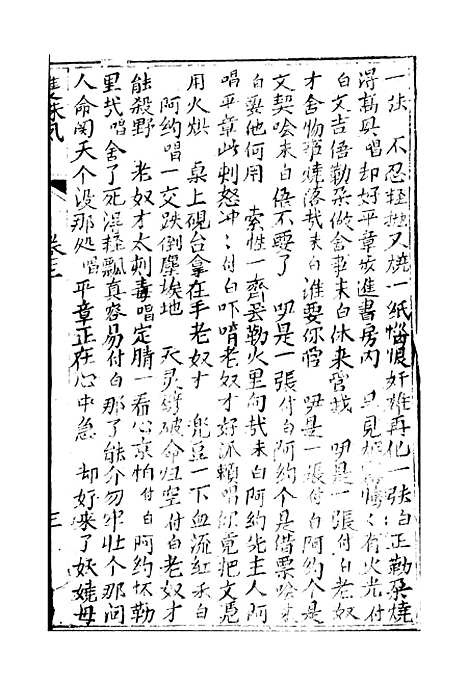 一张 不忍轻抛又烧一纸恼恨奸雄再化一张白正勒朶烧
得高兴唱却好平章步進書房内 只見 有火光付
白文吉倍勒朶做舍事末白休来管我 明是一張付白老奴
才舍物雅燒落哉末白誰要你管 明是一張付白阿約个是
文契唅末白倍不要了 明是一張付白阿約个是借票唅末
白要他何用 索性一齊丟勒火里向哉末白阿約先主人阿
唱平章此刺怒冲〻付白吓唷老奴才好派賴唱你竟把文凭
用火烘 桌上硯台拿在手老奴才 兜豆一下血流紅末白
阿約唱一交跌倒塵埃地 天灵 破命归空付白老奴才
能殺野 老奴才太刺毒唱定睛一看心京怕付白阿約坏勒
里哉唱舍了死得輕飄真容易付白那了能介勿牢壮个那间
人命関天个没那処唱平章正在心中急 却好来了妖嬈母
卷三
三